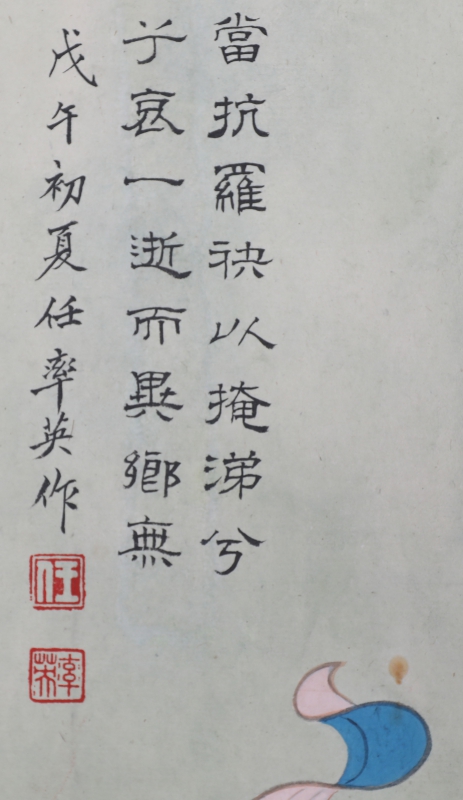 當抗羅袂以掩涕兮
兮哀一逝而異鄉無
戊午初夏任率英作
任
率英